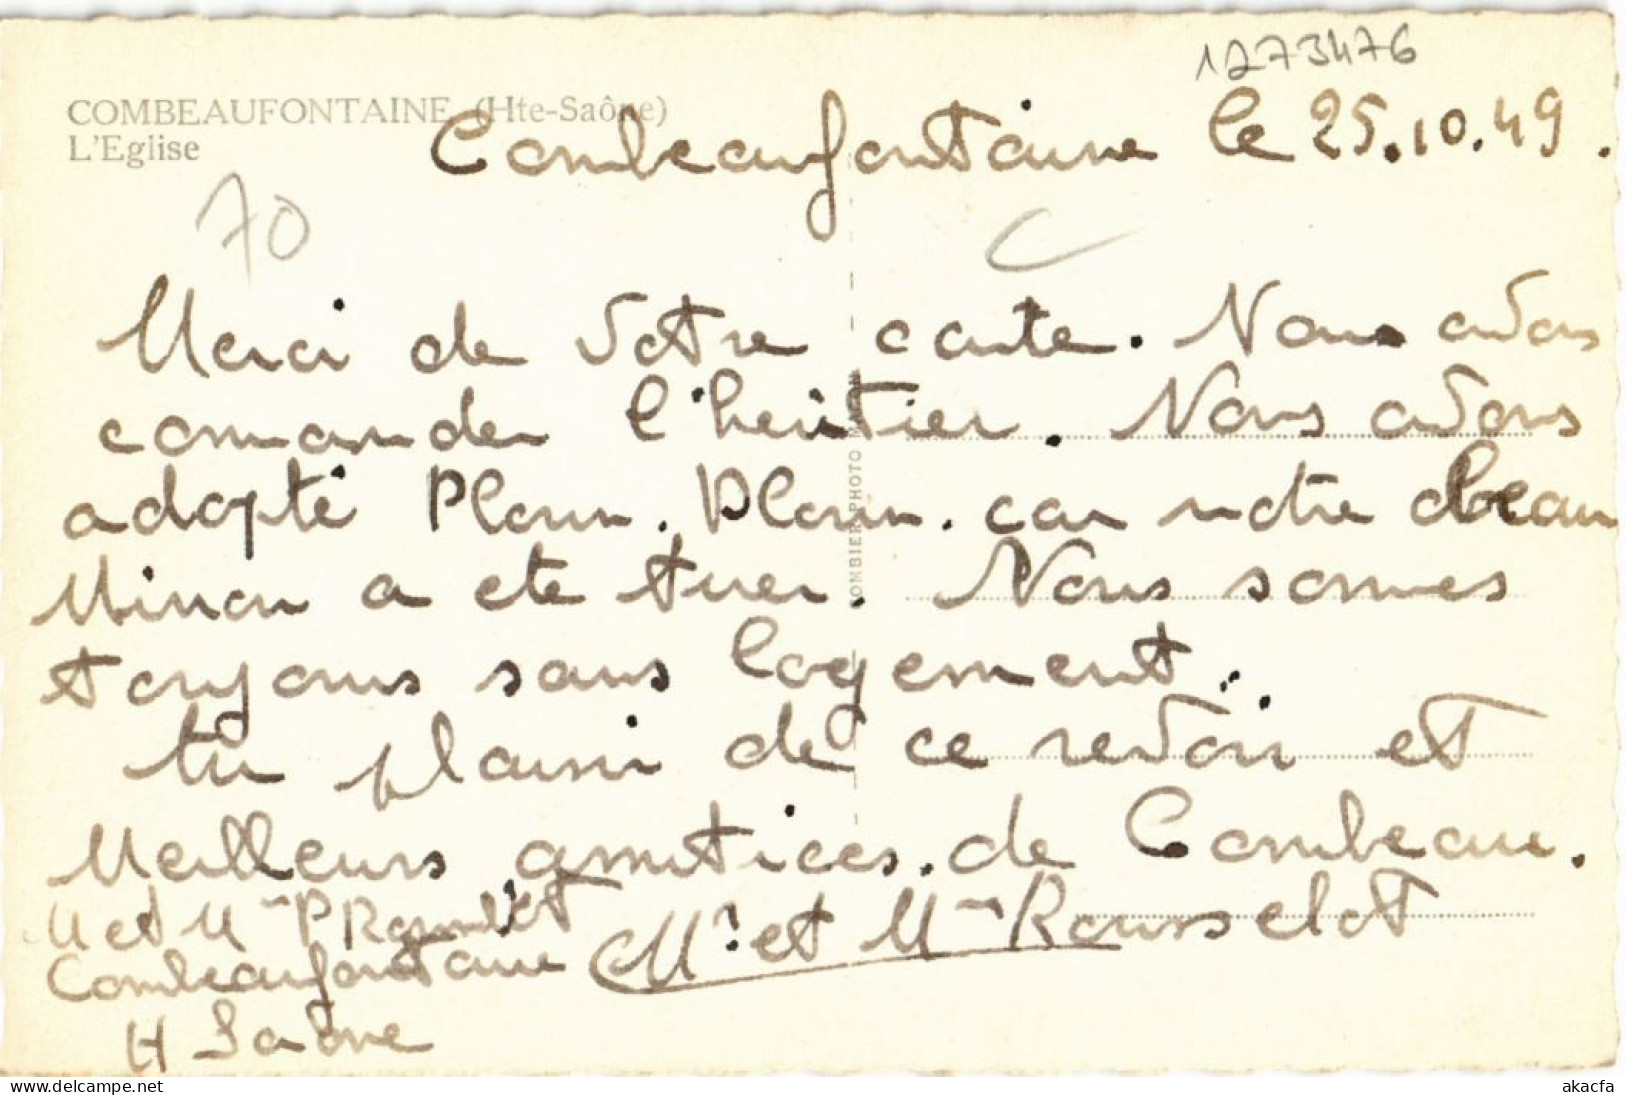 1273476
COMBEAUFONTAINE (Hte-Saône)
L'Eglise
Combeaufontaine le 25.10.49.
70
Merci de votre carte. Nous avons
comander l'heritier. Nous avons
adopté Ploum. Ploum. car notre beau
Minou a ete tuer. Nous sommes
toujours sans logement.
COMBIER PHOTO
tu plaisir de ce revoir et
Meilleurs amitices. de Combeau.
M et Mme P
Mr. et Mme Rousselot
Combeaufontaine
H Saône
akacfa-delcampe.net
akacfa